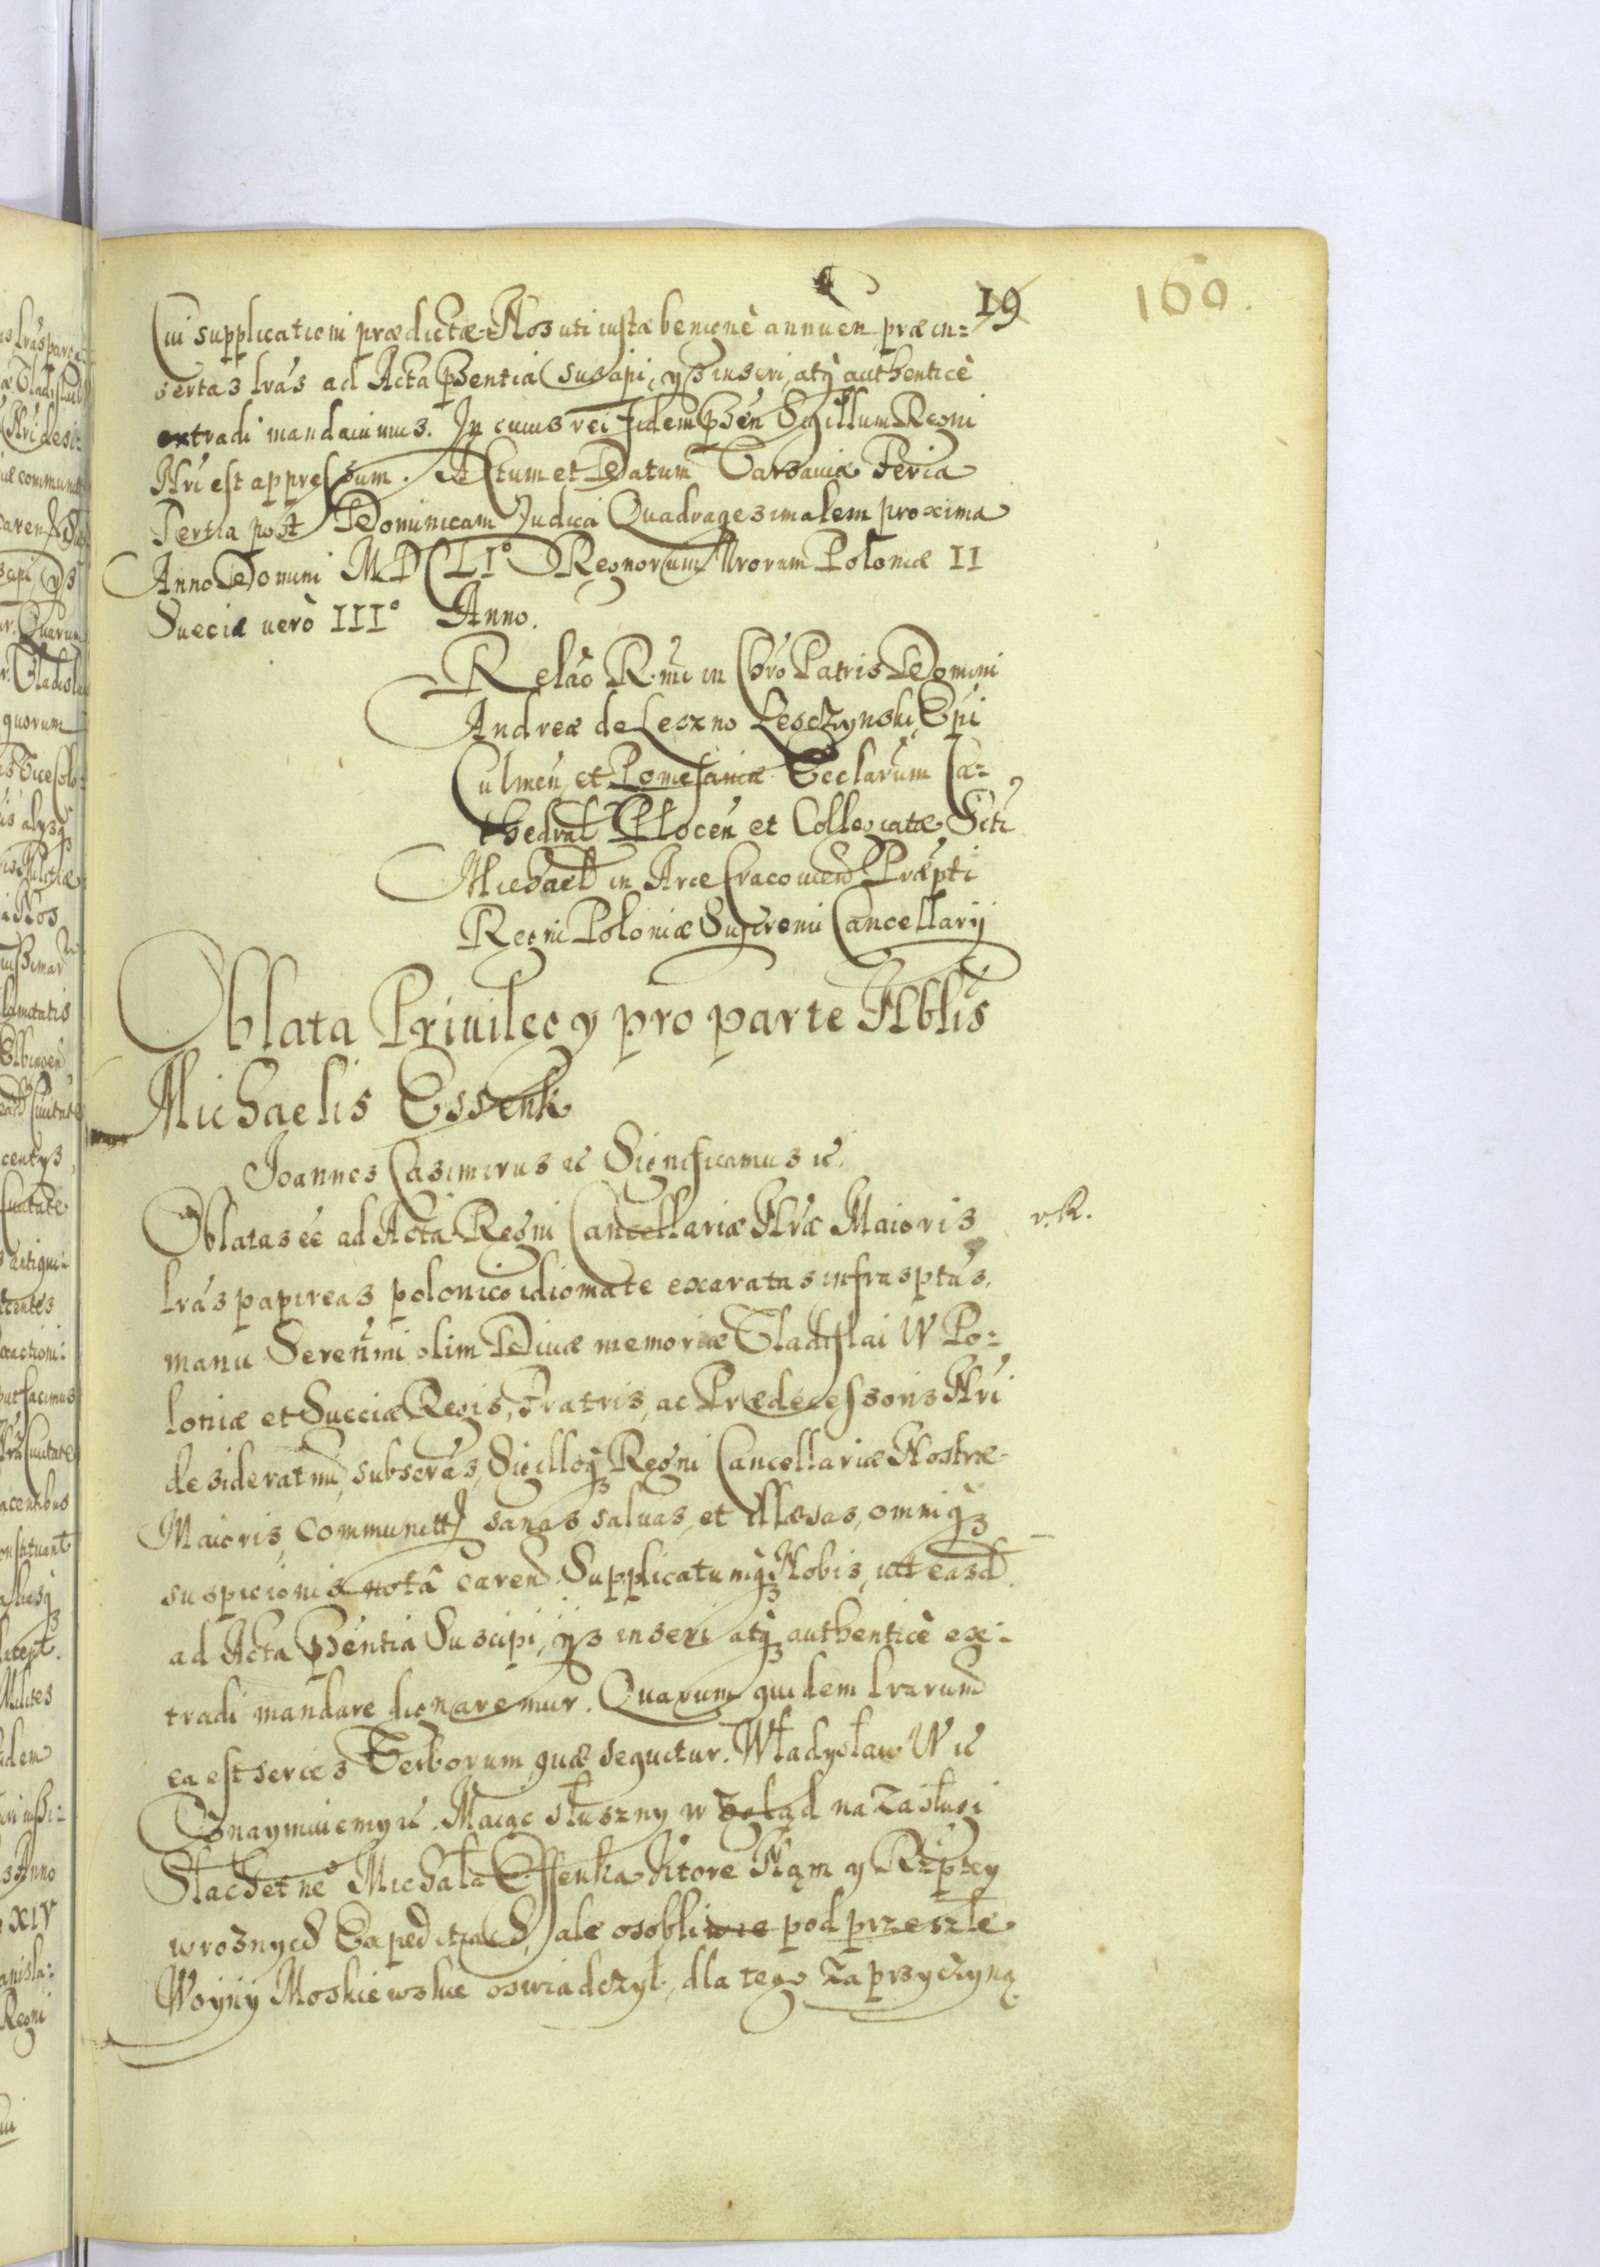 19
160.
Cui supplicationi prædictæ Nos uti iustæ benignè annuen, præin=
sertas lrás ad Acta pntia suscipi, ijs inseri, atq authenticè
extradi mandauimus. In cuius rei fidem psen Sigillum Regni
Nri est appressum. Actum et Datum Varsauiæ Feria
Tertia post Dominicam Judica Quadragesimalem proxima
Anno Domini MDCLI° Regnorum Nrorum Poloniæ II
Sueciæ uerò III° Anno.
Relao R.mi in Chro Patris Domini
Andreæ de Leszno Lesczynski, Epi
Culmen, et Pomesaniæ Ecclarum Ca=
thedral Plocen et Collegiatæ Scti
Michael in Arce Cracouien Præpti
Regni Poloniæ Supremi Cancellarij
Oblata Priuilegy pro parte Nblis
Michaelis Essenk
Joannes Casimirus &c Significamus &c.
Oblatas eē ad Acta Regni Cancellariæ Nræ Maioris
r.R.
lrás papireas polonico idiomate exaratas infrasptas,
manu Serenmi olim Diuæ memoriæ Vladislai IV Po=
loniæ et Sueciæ Regis, Fratris, ac Prædecessoris Nri
desideratmi, subscras, Sigilloq Regni Cancellariæ Nostræ
Maioris, communitt, sanas saluas, et illæsas, omniq
suspicionis notâ caren. Supplicatumq Nobis, utt easd
ad Acta psentia Suscipi, ijs inseri atq authenticè ex=
tradi mandare dignaremur. Quarum quidem lrarum
ea est series Verborum, quæ sequitur. Władysław IV &c
Oznaymuiemy &c. Maiąc słuszny wzgląd na zasługi
Slachetne° Michała Essenka ktore Nąm y Rzptey
wroznych Expeditiach, ale osobliwie pod przeszłe
Woyny Moskiewskie oswiadczył, dla tego za przyczyną